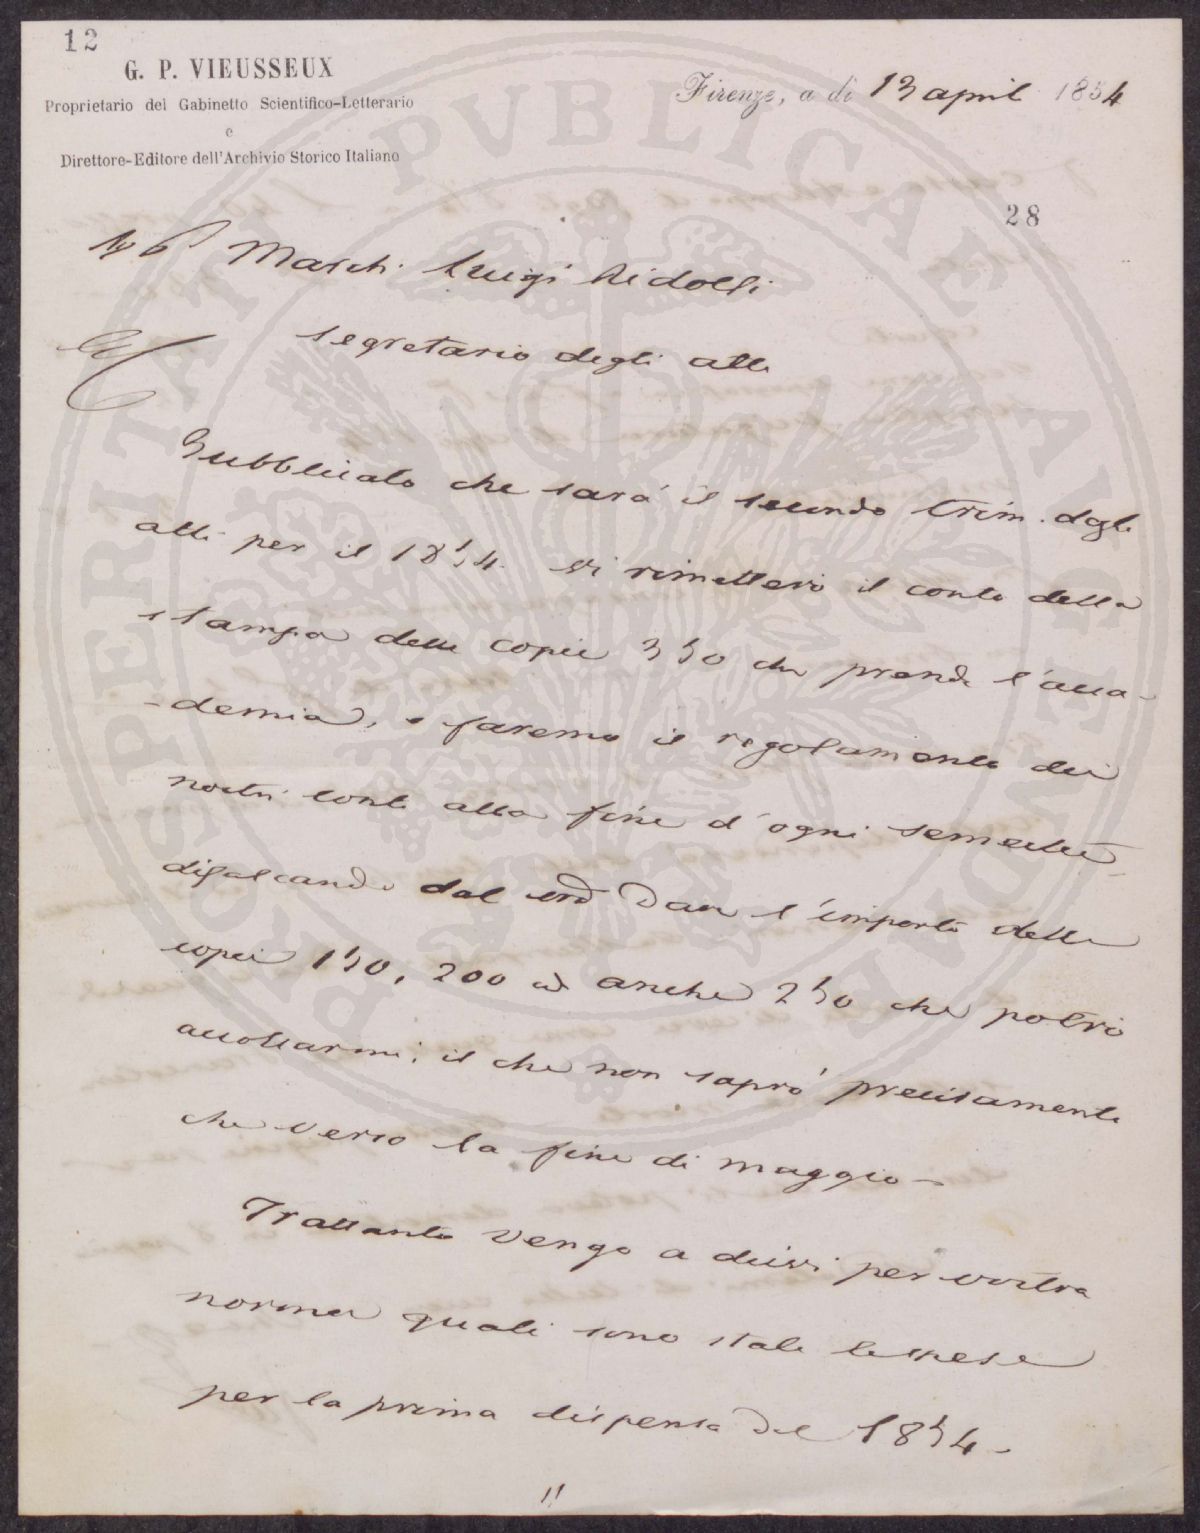 12
G. P. VIEUSSEUX
Proprietario del Gabinetto Scientifico-Letterario
e
Direttore-Editore dell'Archivio Storico Italiano
Firenze, a dì 13 april 1854
28
March. Luigi Ridolfi
segretario degli atti
Pubblicato che sarà il secondo trim. degli
atti per il 1854. vi rimetterò il conto della
stampa delle copie 350 che prende l'acca-
-demia, e faremo il regolamento dei
nostri conti alla fine d'ogni semestre
difalcando dal vro Dare l'importo delle
copie 150, 200 ed anche 250 che potrò
accollarmi; il che non saprò precisamente
che verso la fine di maggio -
Trattanto vengo a dirvi per vostra
norma quali sono state le spese
per la prima dispensa del 1854 -
PROSPERITATI PVBLICAE AVGENDAE